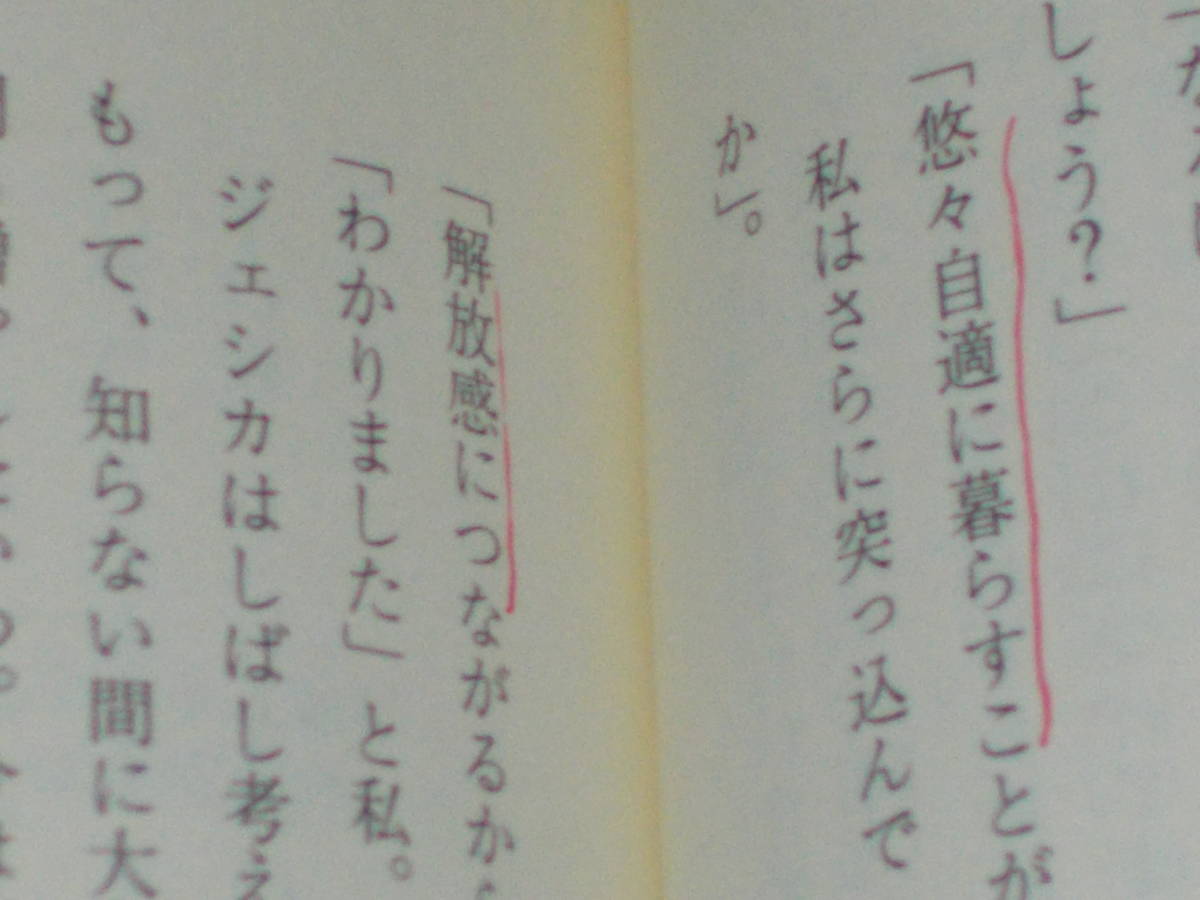 しょう？」
「悠々自適に暮らすことが
私はさらに突っ込んで
か」。
「解放感につながるか
「わかりました」と私。
ジェシカはしばし考え
もって、知らない間に大